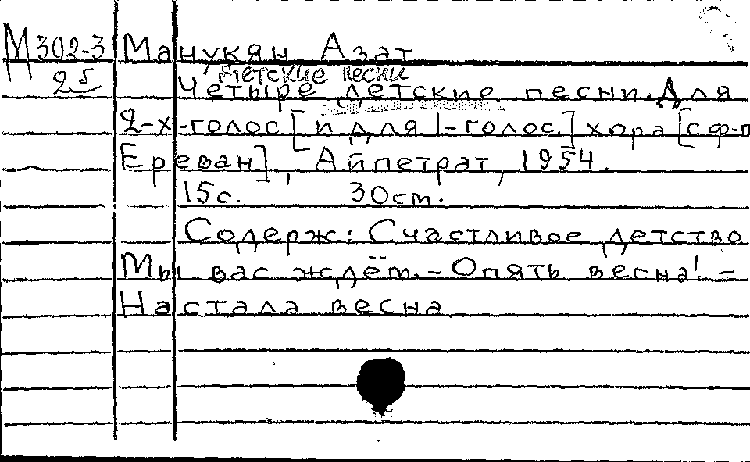 М302-3 Манукян Азат
25 Детские песни
Четыре детские песни. Для
2-х-голос [и для 1-голос] хора [с ф-п
Ереван], Айпетрат, 1954.
15с. 30см.
Содерж: Счастливое детство
Мы вас ждём. – Опять весна! –
Настала весна